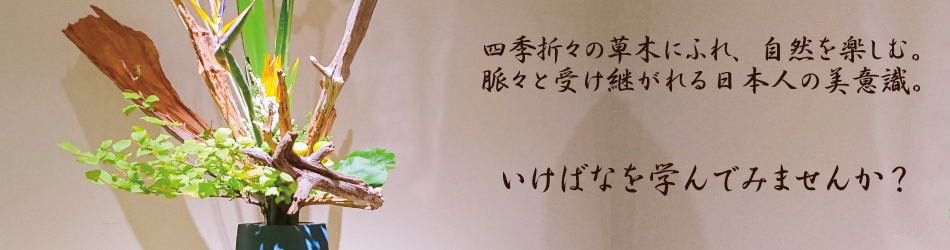 四季折々の草木にふれ、自然を楽しむ。
脈々と受け継がれる日本人の美意識。
いけばなを学んでみませんか？